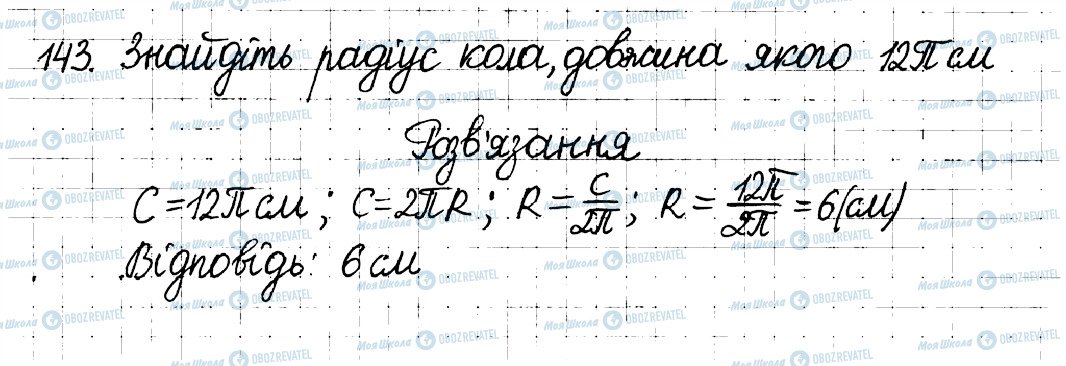 143. Знайдіть радіус кола, довжина якого 12π см
Розв'язання
C = 12π см ; C = 2πR ; R = C/2π ; R = 12π/2π = 6 (см)
Відповідь: 6 см